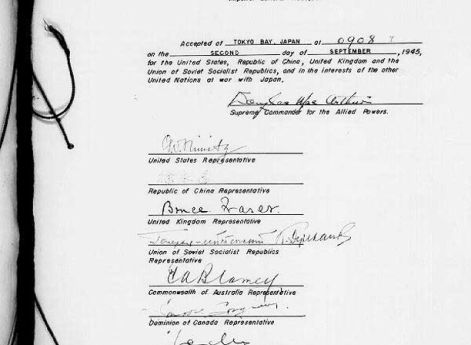 Accepted at TOKYO BAY, JAPAN at 0908 I
on the SECOND day of SEPTEMBER, 1945,
for the United States, Republic of China, United Kingdom and the
Union of Soviet Socialist Republics, and in the interests of the other
United Nations at war with Japan.
Douglas MacArthur
Supreme Commander for the Allied Powers.
C.W. Nimitz
United States Representative
Republic of China Representative
Bruce Fraser
United Kingdom Representative
Union of Soviet Socialist Republics
Representative
T.A. Blamey
Commonwealth of Australia Representative
Dominion of Canada Representative